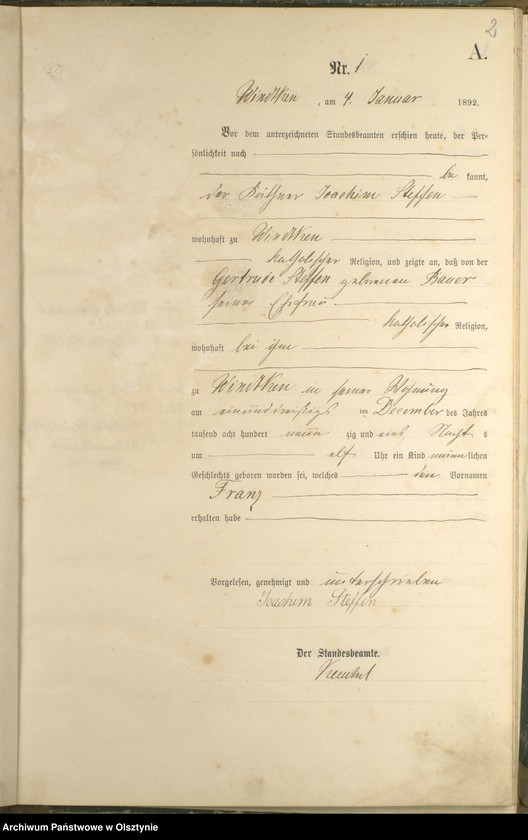 2
A.
Nr. 1
Windtken, am 4. Januar 1892.
Vor dem unterzeichneten Standesbeamten erschien heute, der Per-
sönlichkeit nach
be kannt,
der Käthner Joachim Steffen
wohnhaft zu Windtken
katholischer Religion, und zeigte an, daß von der
Gertrude Steffen geborenen Bauer
seiner Ehefrau
katholischer Religion,
wohnhaft bei ihm
zu Windtken in seiner Wohnung
am einunddreißigs ten December des Jahres
tausend acht hundert neun zig und eins, Nachts
um elf Uhr ein Kind männlichen
Geschlechts geboren worden sei, welches den Vornamen
Franz
erhalten habe
Vorgelesen, genehmigt und unterschrieben
Joachim Steffen
Der Standesbeamte.
Archiwum Państwowe w Olsztynie